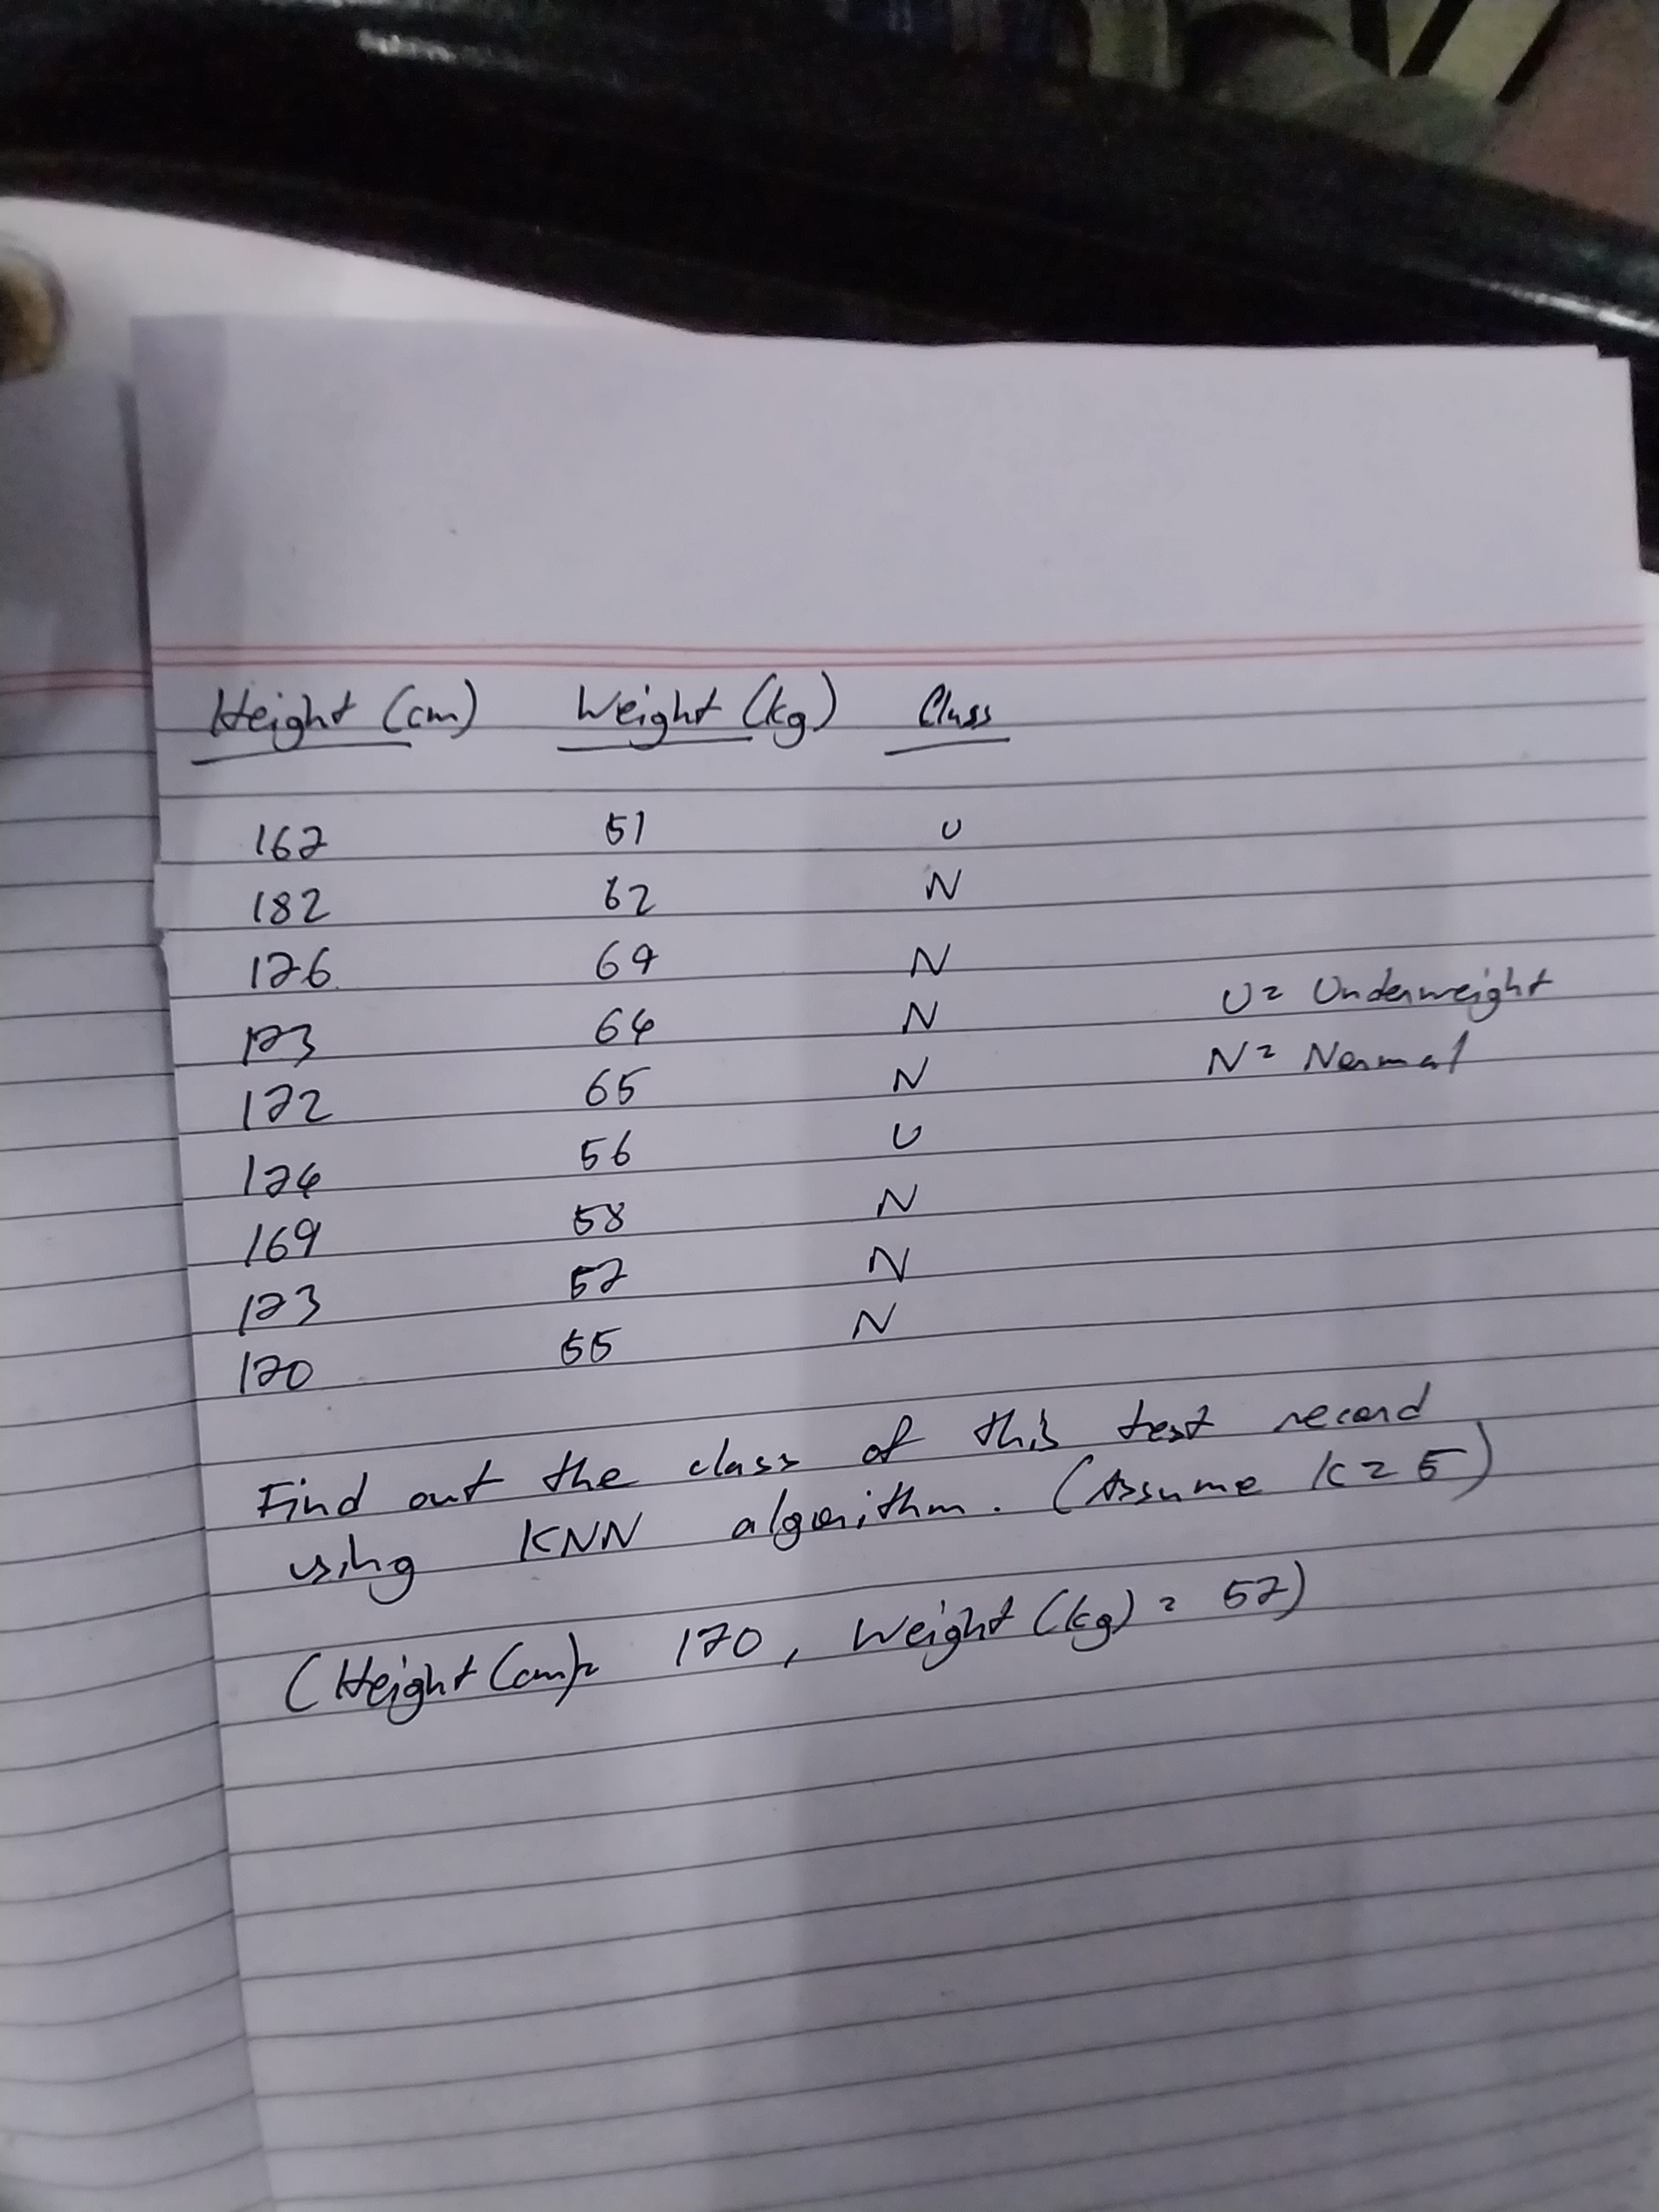 Height (cm) Weight (kg) Class
167 51 U
182 62 N
176 69 N
173 64 N
172 65 N
174 56 U
169 58 N
173 57 N
170 55 N
U = Underweight
N = Normal
Find out the class of this test record
using KNN algorithm. (Assume K = 5)
(Height (cm) = 170, Weight (kg) = 57)